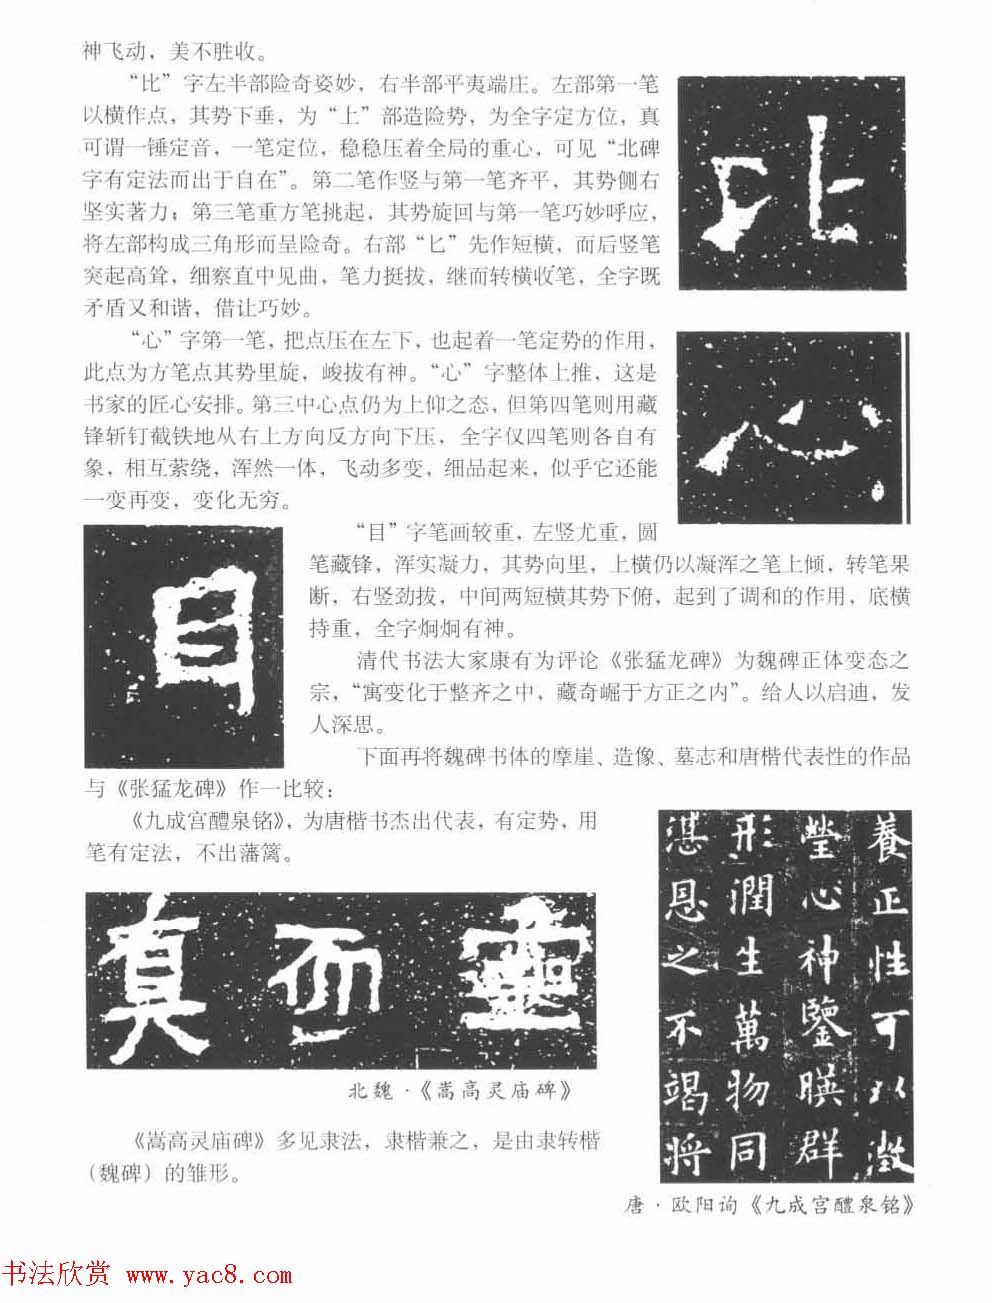 神飞动，美不胜收。
“比”字左半部险奇姿妙，右半部平夷端庄。左部第一笔
以横作点，其势下垂，为“上”部造险势，为全字定方位，真
可谓一锤定音，一笔定位，稳稳压着全局的重心，可见“北碑
字有定法而出于自在”。第二笔作竖与第一笔齐平，其势侧右
坚实著力；第三笔重方笔挑起，其势旋回与第一笔巧妙呼应，
将左部构成三角形而呈险奇。右部“匕”先作短横，而后竖笔
突起高耸，细察直中见曲，笔力挺拔，继而转横收笔，全字既
矛盾又和谐，借让巧妙。
比
“心”字第一笔，把点压在左下，也起着一笔定势的作用，
此点为方笔点其势里旋，峻拔有神。“心”字整体上推，这是
书家的匠心安排。第三中心点仍为上仰之态，但第四笔则用藏
锋斩钉截铁地从右上方向反方向下压，全字仅四笔则各自有
象，相互萦绕，浑然一体，飞动多变，细品起来，似乎它还能
一变再变，变化无穷。
心
“目”字笔画较重，左竖尤重，圆
笔藏锋，浑实凝力，其势向里，上横仍以凝浑之笔上倾，转笔果
断，右竖劲拔，中间两短横其势下俯，起到了调和的作用，底横
持重，全字炯炯有神。
目
清代书法大家康有为评论《张猛龙碑》为魏碑正体变态之
宗，“寓变化于整齐之中，藏奇崛于方正之内”。给人以启迪，发
人深思。
下面再将魏碑书体的摩崖、造像、墓志和唐楷代表性的作品
与《张猛龙碑》作一比较：
《九成宫醴泉铭》，为唐楷书杰出代表，有定势，用
笔有定法，不出藩篱。
真而靈
北魏·《嵩高灵庙碑》
《嵩高灵庙碑》多见隶法，隶楷兼之，是由隶转楷
（魏碑）的雏形。
養正性可以澂
瑩心神鑒暎群
形潤生萬物同
湛恩之不竭将
唐·欧阳询《九成宫醴泉铭》
书法欣赏 www.yac8.com